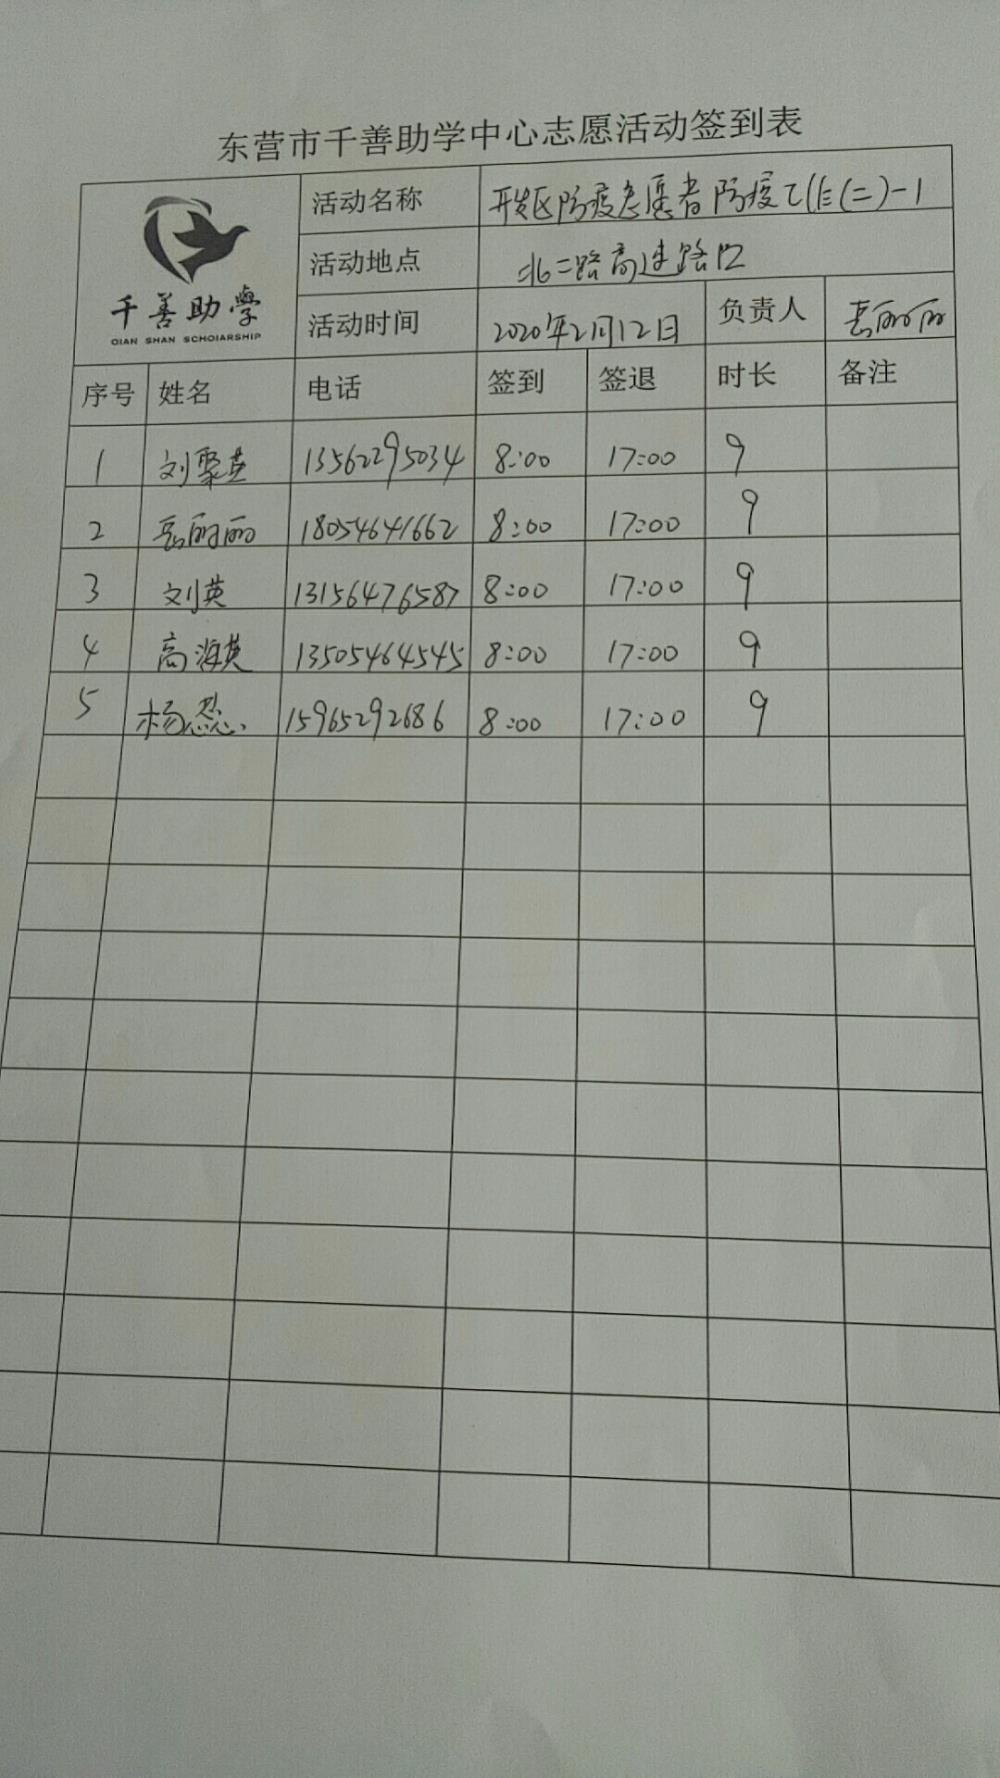 东营市千善助学中心志愿活动签到表
千善助學
QIAN SHAN SCHOIARSHIP
活动名称 开发区防疫志愿者防疫 (二)-1
活动地点 北二路高速路口
活动时间 2020年2月12日 负责人 丽丽
序号 姓名 电话 签到 签退 时长 备注
1 刘聚英 13562295034 8:00 17:00 9
2 丽丽 18054641662 8:00 17:00 9
3 刘英 13156476587 8:00 17:00 9
4 高海英 13505464545 8:00 17:00 9
5 杨 15965292686 8:00 17:00 9